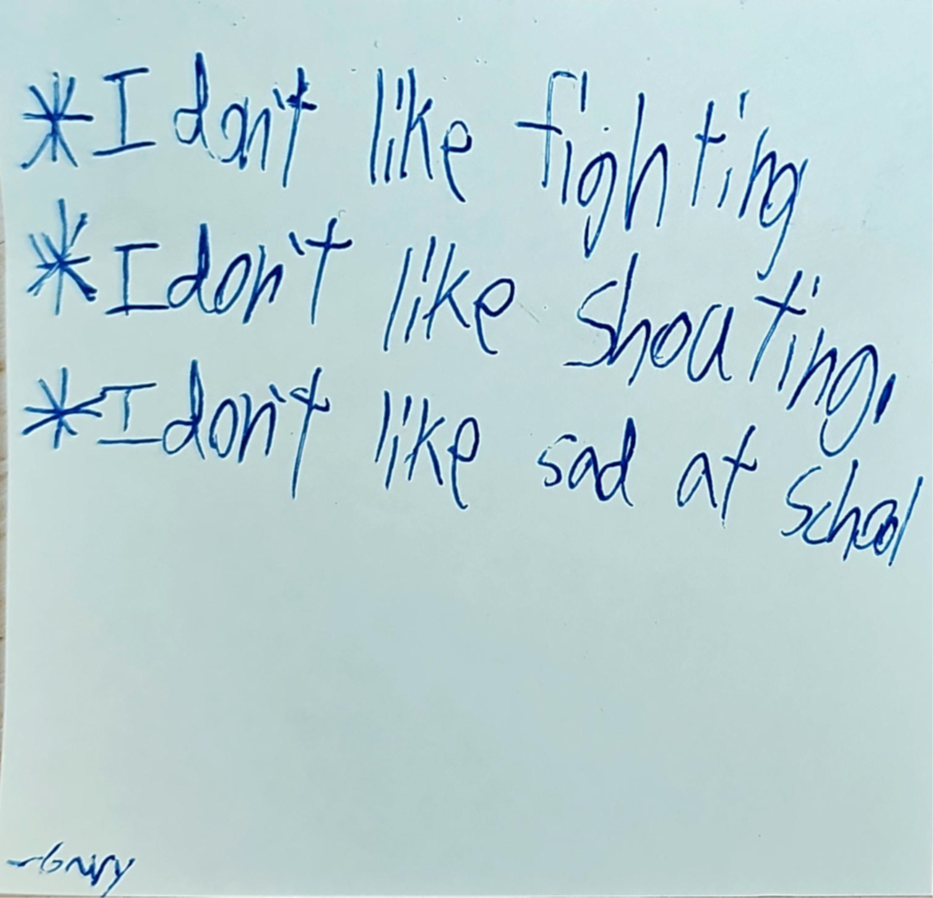 *I don't like fighting
*I don't like shouting,
*I don't like sad at school